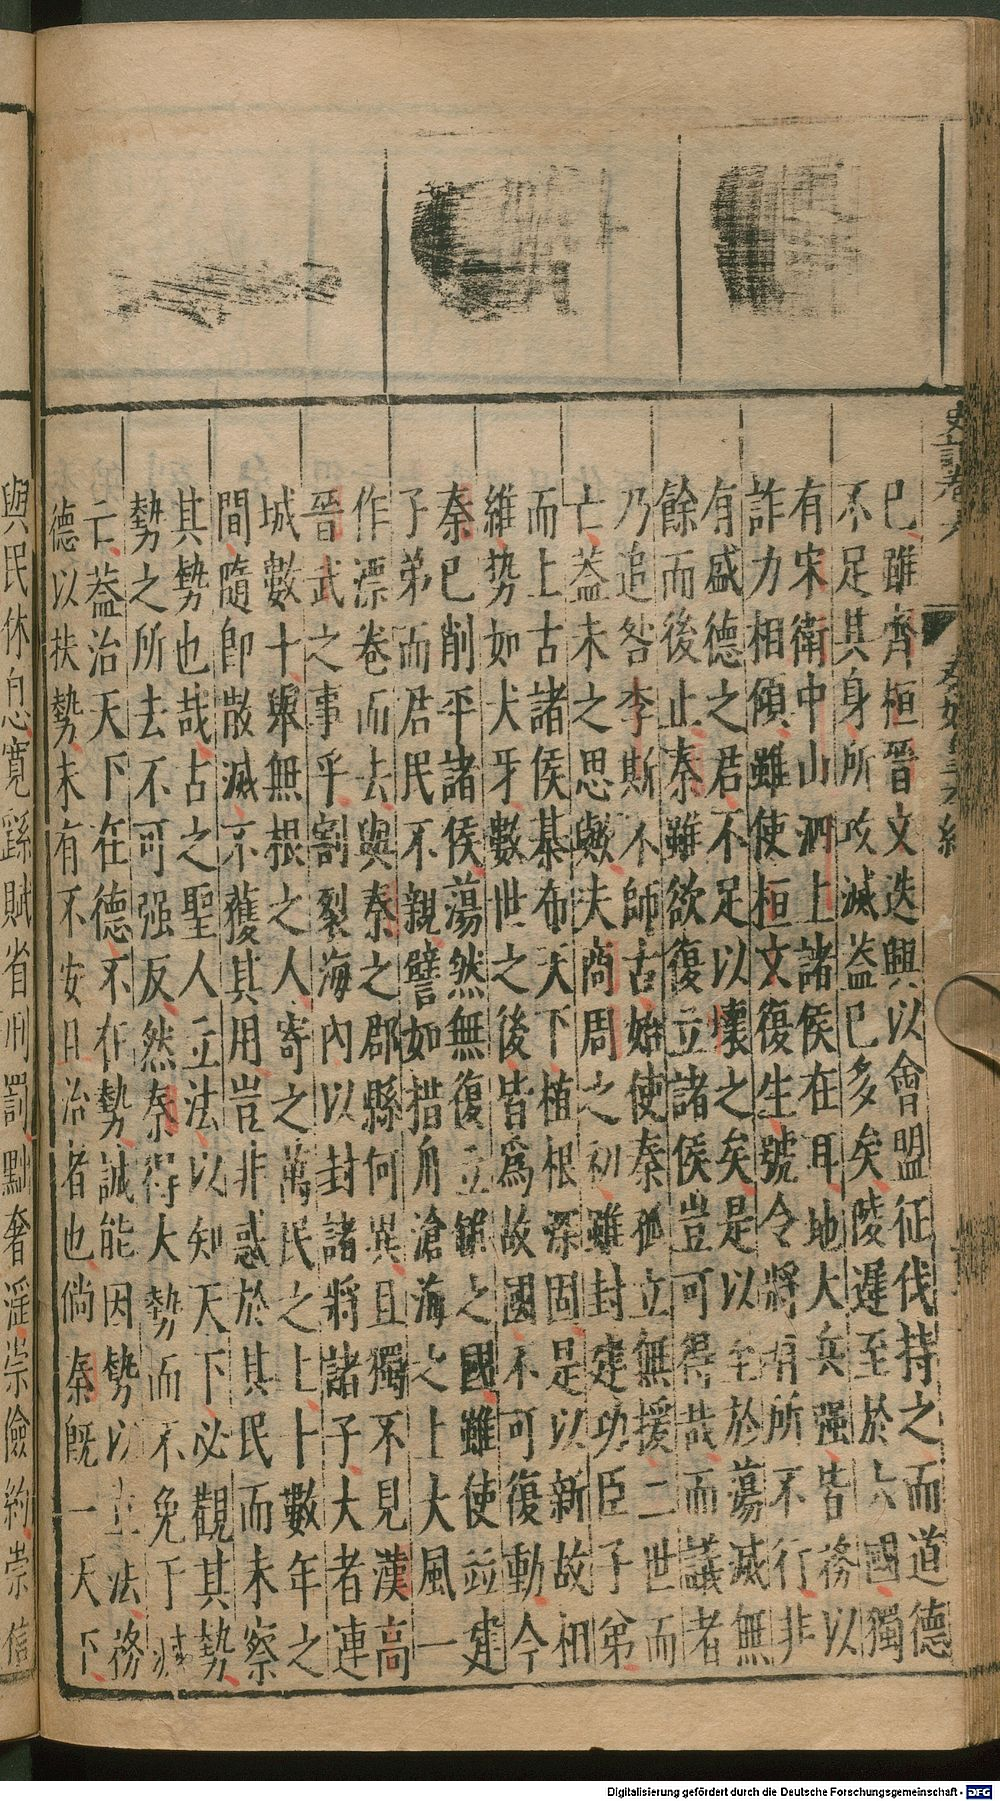 史記卷六
秦始皇本紀
已雖齊桓晉文迭興以會盟征伐持之而道德
不足其身所攻滅蓋已多矣陵遲至於六國獨
有宋衛中山泗上諸侯在耳地大兵强皆務以
詐力相傾雖使桓文復生號令將有所不行非
有盛德之君不足以懷之矣是以至於蕩滅無
餘而後止秦雖欲復立諸侯豈可得哉而議者
乃追咎李斯不師古始使秦孤立無援二世而
亡蓋未之思歟夫商周之初雖封建功臣子弟
而上古諸侯棊布天下植根深固是以新故相
維势如犬牙數世之後皆爲故國不可復動今
秦已削平諸侯蕩然無復立錐之國雖使並建
子弟而君民不親譬如措舟滄海之上大風一
作漂卷而去與秦之郡縣何異且獨不見漢高
晉武之事乎割裂海內以封諸將諸子大者連
城數十舉無根之人寄之萬民之上十數年之
間隨卽散滅不獲其用豈非惑於其民而未察
其勢也哉古之聖人立法以知天下必觀其勢
勢之所去不可强反然秦得大勢而不免于滅
亡蓋治天下在德不在勢誠能因勢以立法務
德以扶勢未有不安且治者也倘秦旣一天下
與民休息寬䌛賦省刑罰黜奢淫崇儉約崇信
Digitalisierung gefördert durch die Deutsche Forschungsgemeinschaft - DFG